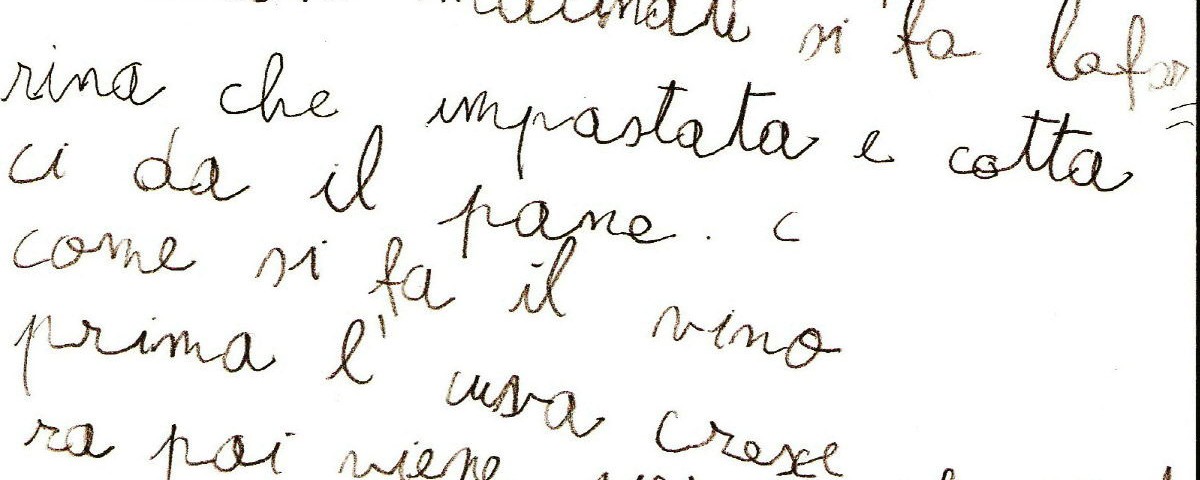 macinati si fa lafa=
rina che impastata e cotta
ci da il pane. c
come si fa il vino
prima l'uva cresce
ra poi viene